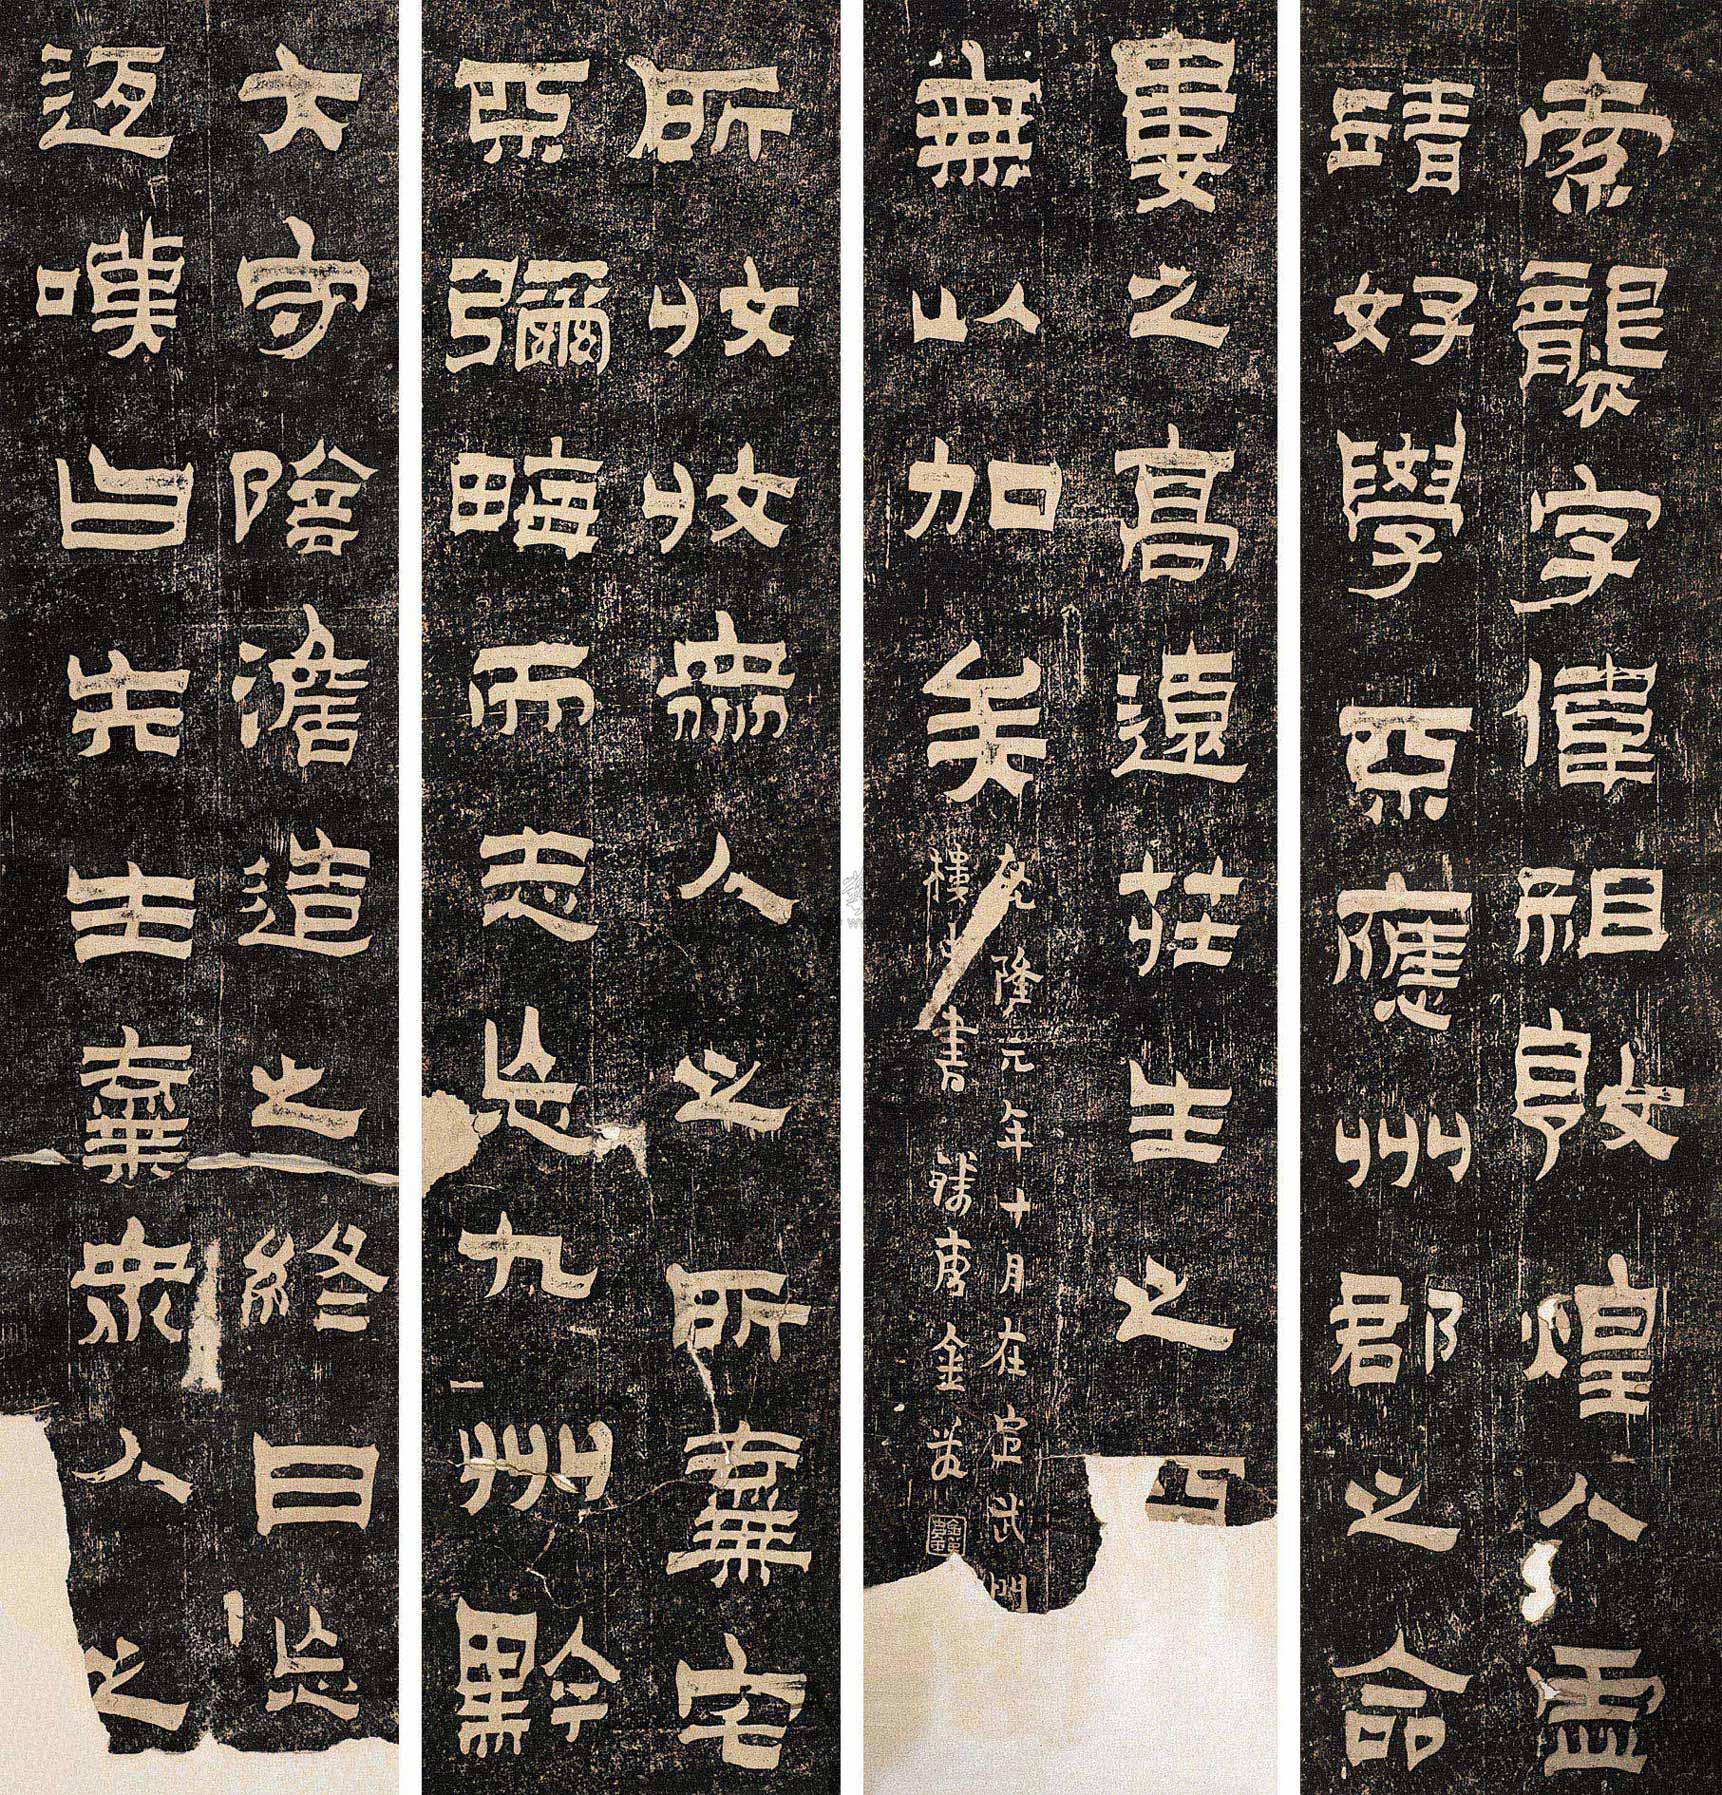 索襲字偉祖敦煌人虛
靖好學不應州郡之命
大守陰澹造之終日忘
返嘆曰先生棄衆人之
所收收衆人之所棄宅
不彌畝而志忘九州黔
婁之高遠莊生之
無以加矣
乾隆元年十月在宣武門
樓書錢唐金農